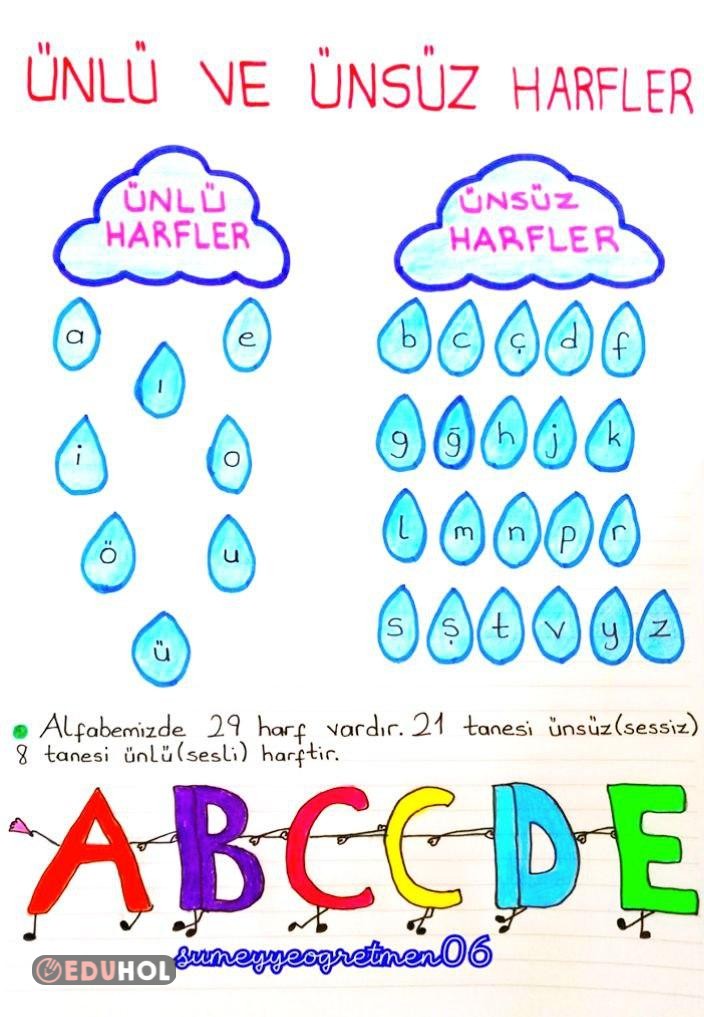 ÜNLÜ VE ÜNSÜZ HARFLER
ÜNLÜ
HARFLER
a e
ı
i o
ö u
ü
ÜNSÜZ
HARFLER
b c ç d f
g ğ h j k
l m n p r
s ş t v y z
Alfabemizde 29 harf vardır. 21 tanesi ünsüz(sessiz)
8 tanesi ünlü(sesli) harftir.
ABCCDE
sumeyyeogretmen06
EDUHOL